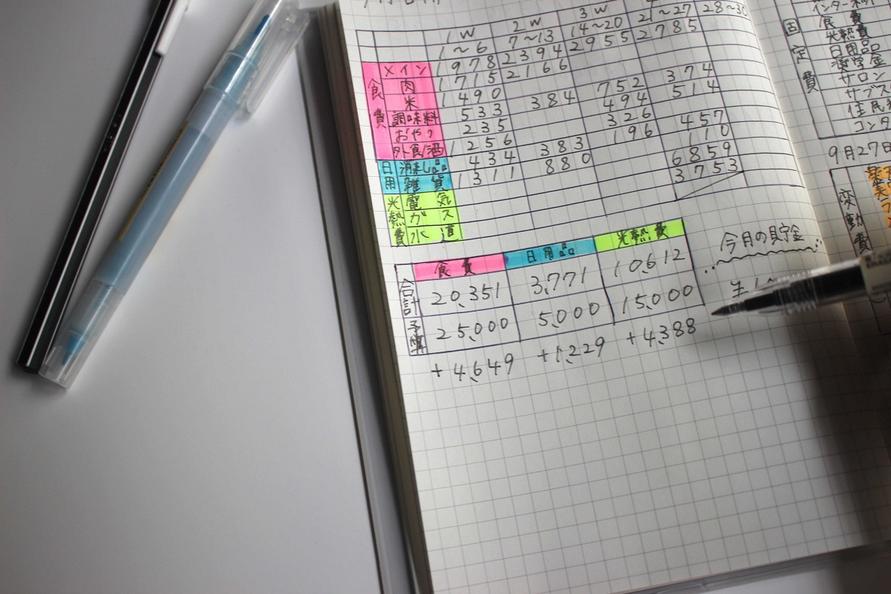 1W 2W 3W
1~6 7~13 14~20 21~27 28~30
食費
メイン 978 2394 2955 2785
肉 1715 2166
米 1490
調味料 533 384 752 374
おやつ 235 494 514
外食/酒 326
日用
消耗品 434 383 196 457
雑貨 311 880 110
光熱費
電気 6859
ガス 3753
水道
食費 日用品 光熱費
合計 20,351 3,771 10,612
予算 25,000 5,000 15,000
+4,649 +1,229 +4,388
今月の貯金
固定費
インターネット
食費
光熱費
日用品
奨学金
サロン
サブス
住民
コンタ
9月27日
変動費